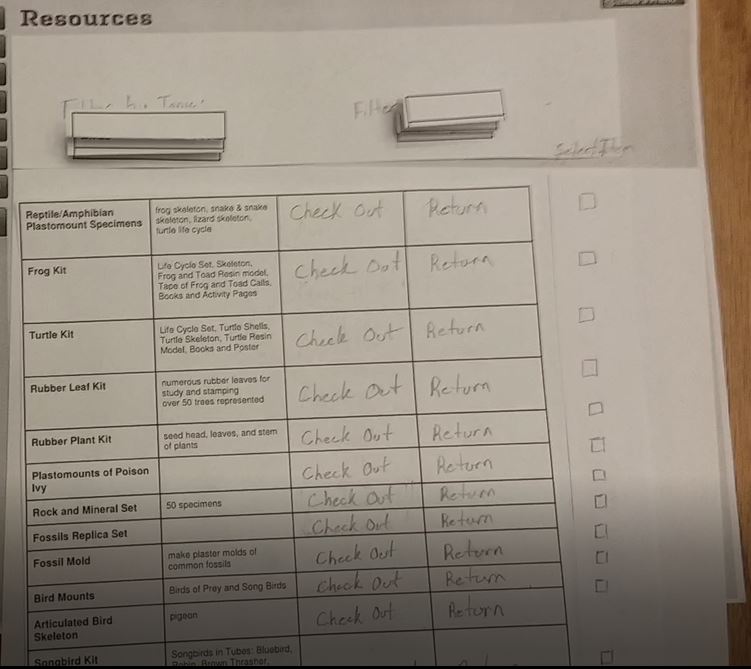 Resources
Filter
Select Item
Reptile/Amphibian
Plastomount Specimens
frog skeleton, snake & snake
skeleton, lizard skeleton,
turtle life cycle
Check Out
Return
Frog Kit
Life Cycle Set, Skeleton,
Frog and Toad Resin model,
Tape of Frog and Toad Calls,
Books and Activity Pages
Check Out
Return
Turtle Kit
Life Cycle Set, Turtle Shells,
Turtle Skeleton, Turtle Resin
Model, Books and Poster
Check Out
Return
Rubber Leaf Kit
numerous rubber leaves for
study and stamping
over 50 trees represented
Check Out
Return
Rubber Plant Kit
seed head, leaves, and stem
of plants
Check Out
Return
Plastomounts of Poison
Ivy
Check Out
Return
Rock and Mineral Set
50 specimens
Check Out
Return
Fossils Replica Set
Check Out
Return
Fossil Mold
make plaster molds of
common fossils
Check Out
Return
Bird Mounts
Birds of Prey and Song Birds
Check Out
Return
Articulated Bird
Skeleton
pigeon
Check Out
Return
Songbird Kit
Songbirds in Tubes: Bluebird,
Robin, Brown Thrasher,